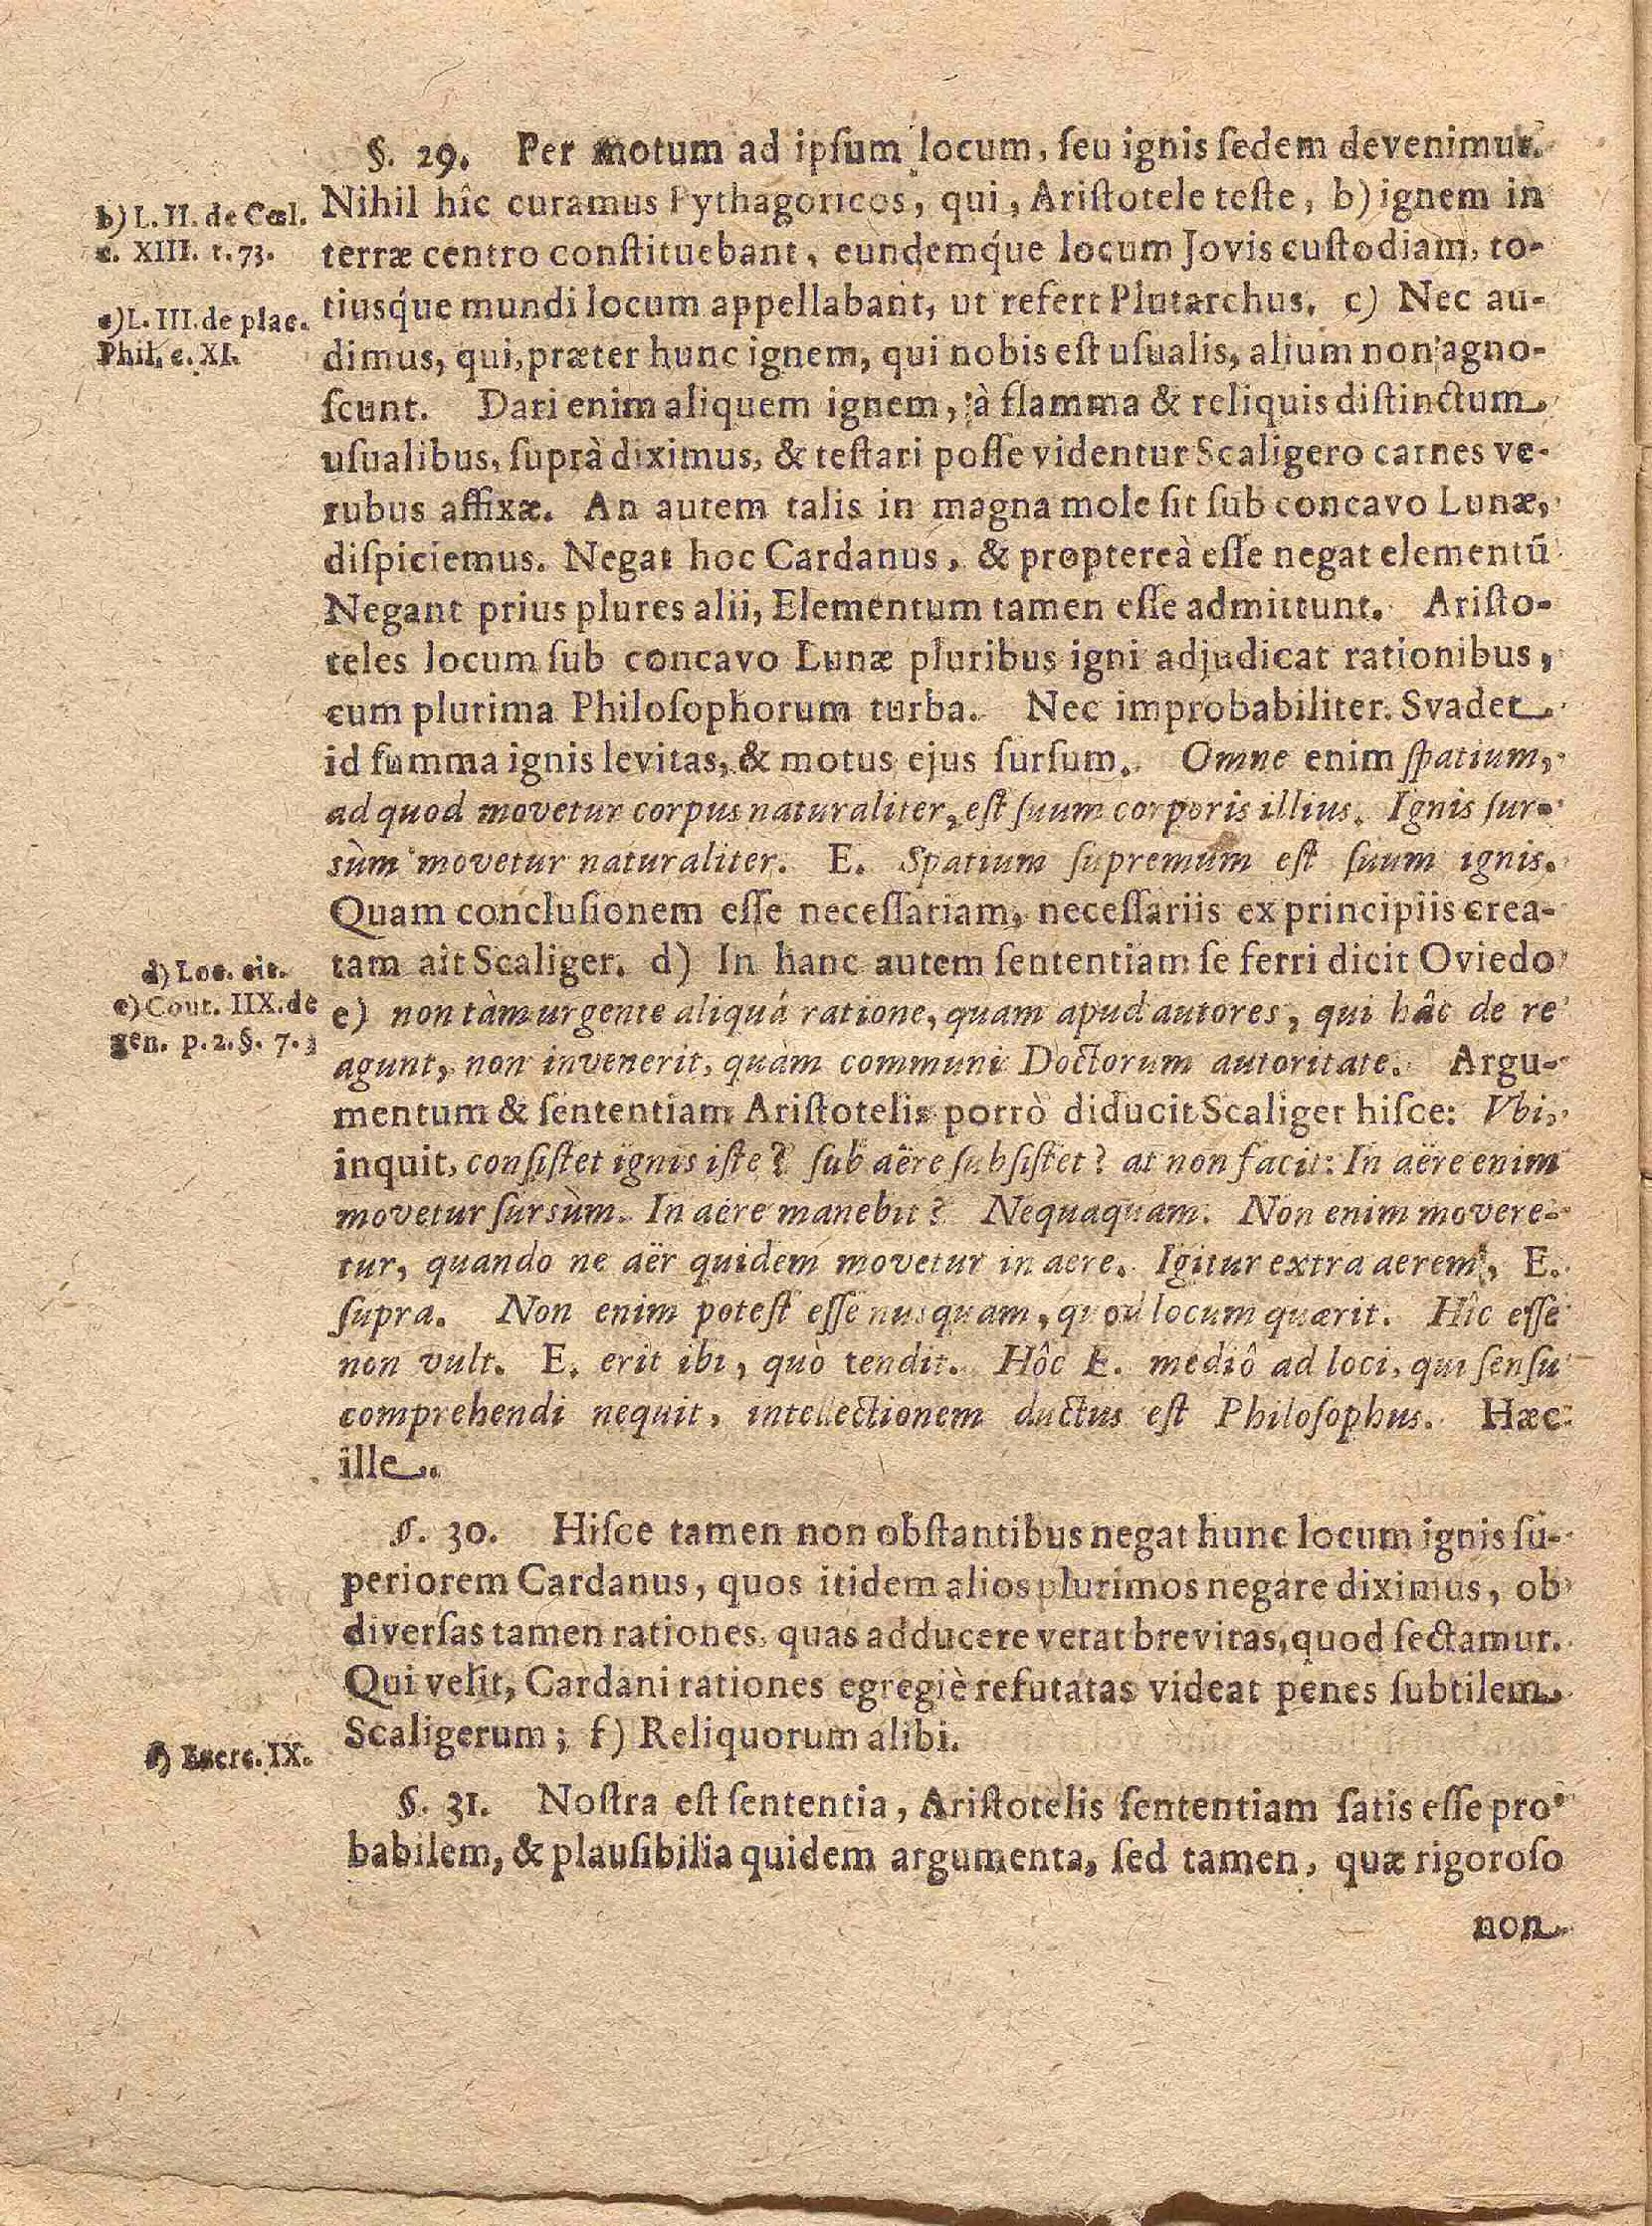 §. 29. Per motum ad ipſum locum, ſeu ignis ſedem devenimus.
Nihil hîc curamus Pythagoricos, qui, Ariſtotele teſte, b) ignem in
b) L. II. de Cœl.
c. XIII. t. 73.
terræ centro conſtituebant, eundemq́ue locum Jovis cuſtodiam, to-
tiusq́ue mundi locum appellabant, ut refert Plutarchus. c) Nec au-
c) L. III. de plac.
Phil. c. XI.
dimus, qui, præter hunc ignem, qui nobis eſt uſualis, alium non agno-
ſcunt. Dari enim aliquem ignem, à flamma & reliquis diſtinctum
uſualibus, ſuprà diximus, & teſtari poſſe videntur Scaligero carnes ve-
rubus affixæ. An autem talis in magna mole ſit ſub concavo Lunæ,
diſpiciemus. Negat hoc Cardanus, & proptereà eſſe negat elementū
Negant prius plures alii, Elementum tamen eſſe admittunt. Ariſto-
teles locum ſub concavo Lunæ pluribus igni adjudicat rationibus,
cum plurima Philoſophorum turba. Nec improbabiliter. Svadet
id ſumma ignis levitas, & motus ejus ſurſum. Omne enim ſpatium,
ad quod movetur corpus naturaliter, eſt ſuum corporis illius. Ignis ſur-
sùm movetur naturaliter. E. Spatium ſupremum eſt ſuum ignis.
Quam concluſionem eſſe neceſſariam, neceſſariis ex principiis crea-
tam ait Scaliger. d) In hanc autem ſententiam ſe ferri dicit Oviedo
d) Loc. cit.
e) Cont. IIX. de
gen. p. 2. §. 7. 3
e) non tàm urgente aliquâ ratione, quam apud autores, qui hâc de re
agunt, non invenerit, quàm communi Doctorum autoritate. Argu-
mentum & ſententiam Ariſtotelis porrò diducit Scaliger hiſce: Vbi,
inquit, conſiſtet ignis iſte? ſub aëre ſubſiſtet? at non facit: In aëre enim
movetur ſursùm. In aëre manebit? Nequaquam. Non enim movere-
tur, quando ne aër quidem movetur in aere. Igitur extra aerem, E.
ſupra. Non enim poteſt eſſe nusquam, quod locum quærit. Hîc eſſe
non vult. E. erit ibi, quò tendit. Hôc E. mediô ad loci, qui ſenſu
comprehendi nequit, intellectionem ductus eſt Philoſophus. Hæc
ille.
§. 30. Hiſce tamen non obſtantibus negat hunc locum ignis ſu-
periorem Cardanus, quos itidem alios plurimos negare diximus, ob
diverſas tamen rationes, quas adducere vetat brevitas, quod ſectamur.
Qui velit, Cardani rationes egregiè refutatas videat penes ſubtilem
Scaligerum; f) Reliquorum alibi.
f) Exerc. IX.
§. 31. Noſtra eſt ſententia, Ariſtotelis ſententiam ſatis eſſe pro-
babilem, & plauſibilia quidem argumenta, ſed tamen, quæ rigoroſo
non